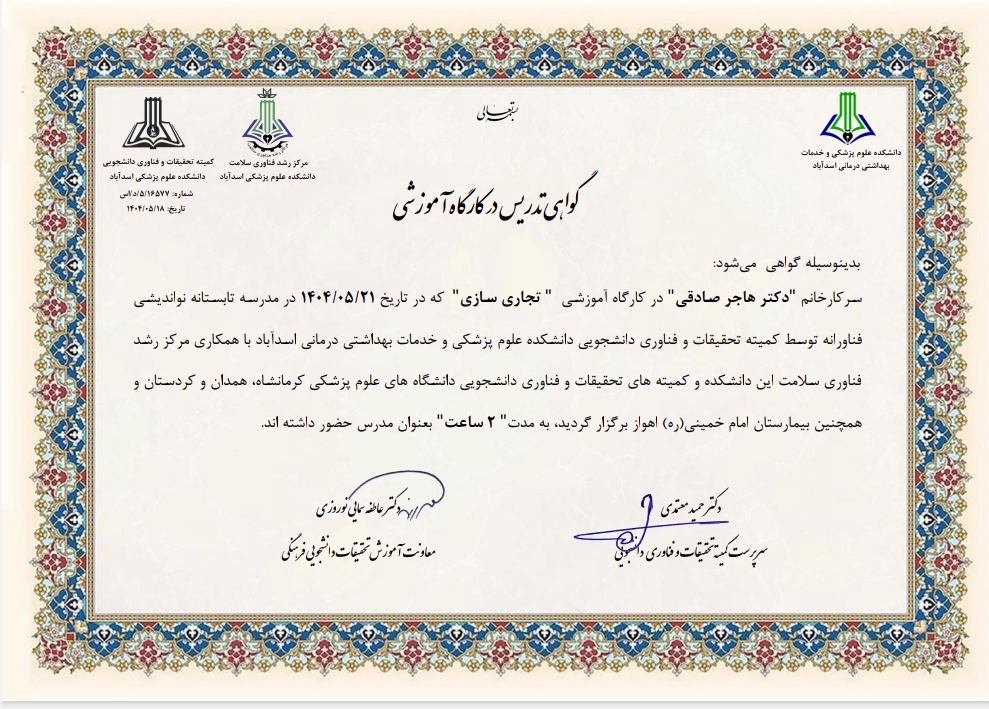 بسمه تعالی
دانشکده علوم پزشکی و خدمات
بهداشتی درمانی اسدآباد
مرکز رشد فناوری سلامت
دانشکده علوم پزشکی اسدآباد
کمیته تحقیقات و فناوری دانشجویی
دانشکده علوم پزشکی اسدآباد
شماره: ۵/۱۶۵۷۷/د/اس
تاریخ: ۱۴۰۴/۰۵/۱۸
گواهی تدریس در کارگاه آموزشی
بدینوسیله گواهی می‌شود:
سرکارخانم "دکتر هاجر صادقی" در کارگاه آموزشی " تجاری سازی" که در تاریخ ۱۴۰۴/۰۵/۲۱ در مدرسه تابستانه نواندیشی
فناورانه توسط کمیته تحقیقات و فناوری دانشجویی دانشکده علوم پزشکی و خدمات بهداشتی درمانی اسدآباد با همکاری مرکز رشد
فناوری سلامت این دانشکده و کمیته های تحقیقات و فناوری دانشجویی دانشگاه های علوم پزشکی کرمانشاه، همدان و کردستان و
همچنین بیمارستان امام خمینی(ره) اهواز برگزار گردید، به مدت" ۲ ساعت" بعنوان مدرس حضور داشته اند.
دکتر حمید معتمدی
سرپرست کمیته تحقیقات و فناوری دانشجویی
دکتر عاطفه سمایی نوروزی
معاونت آموزش تحقیقات دانشجویی فرهنگی